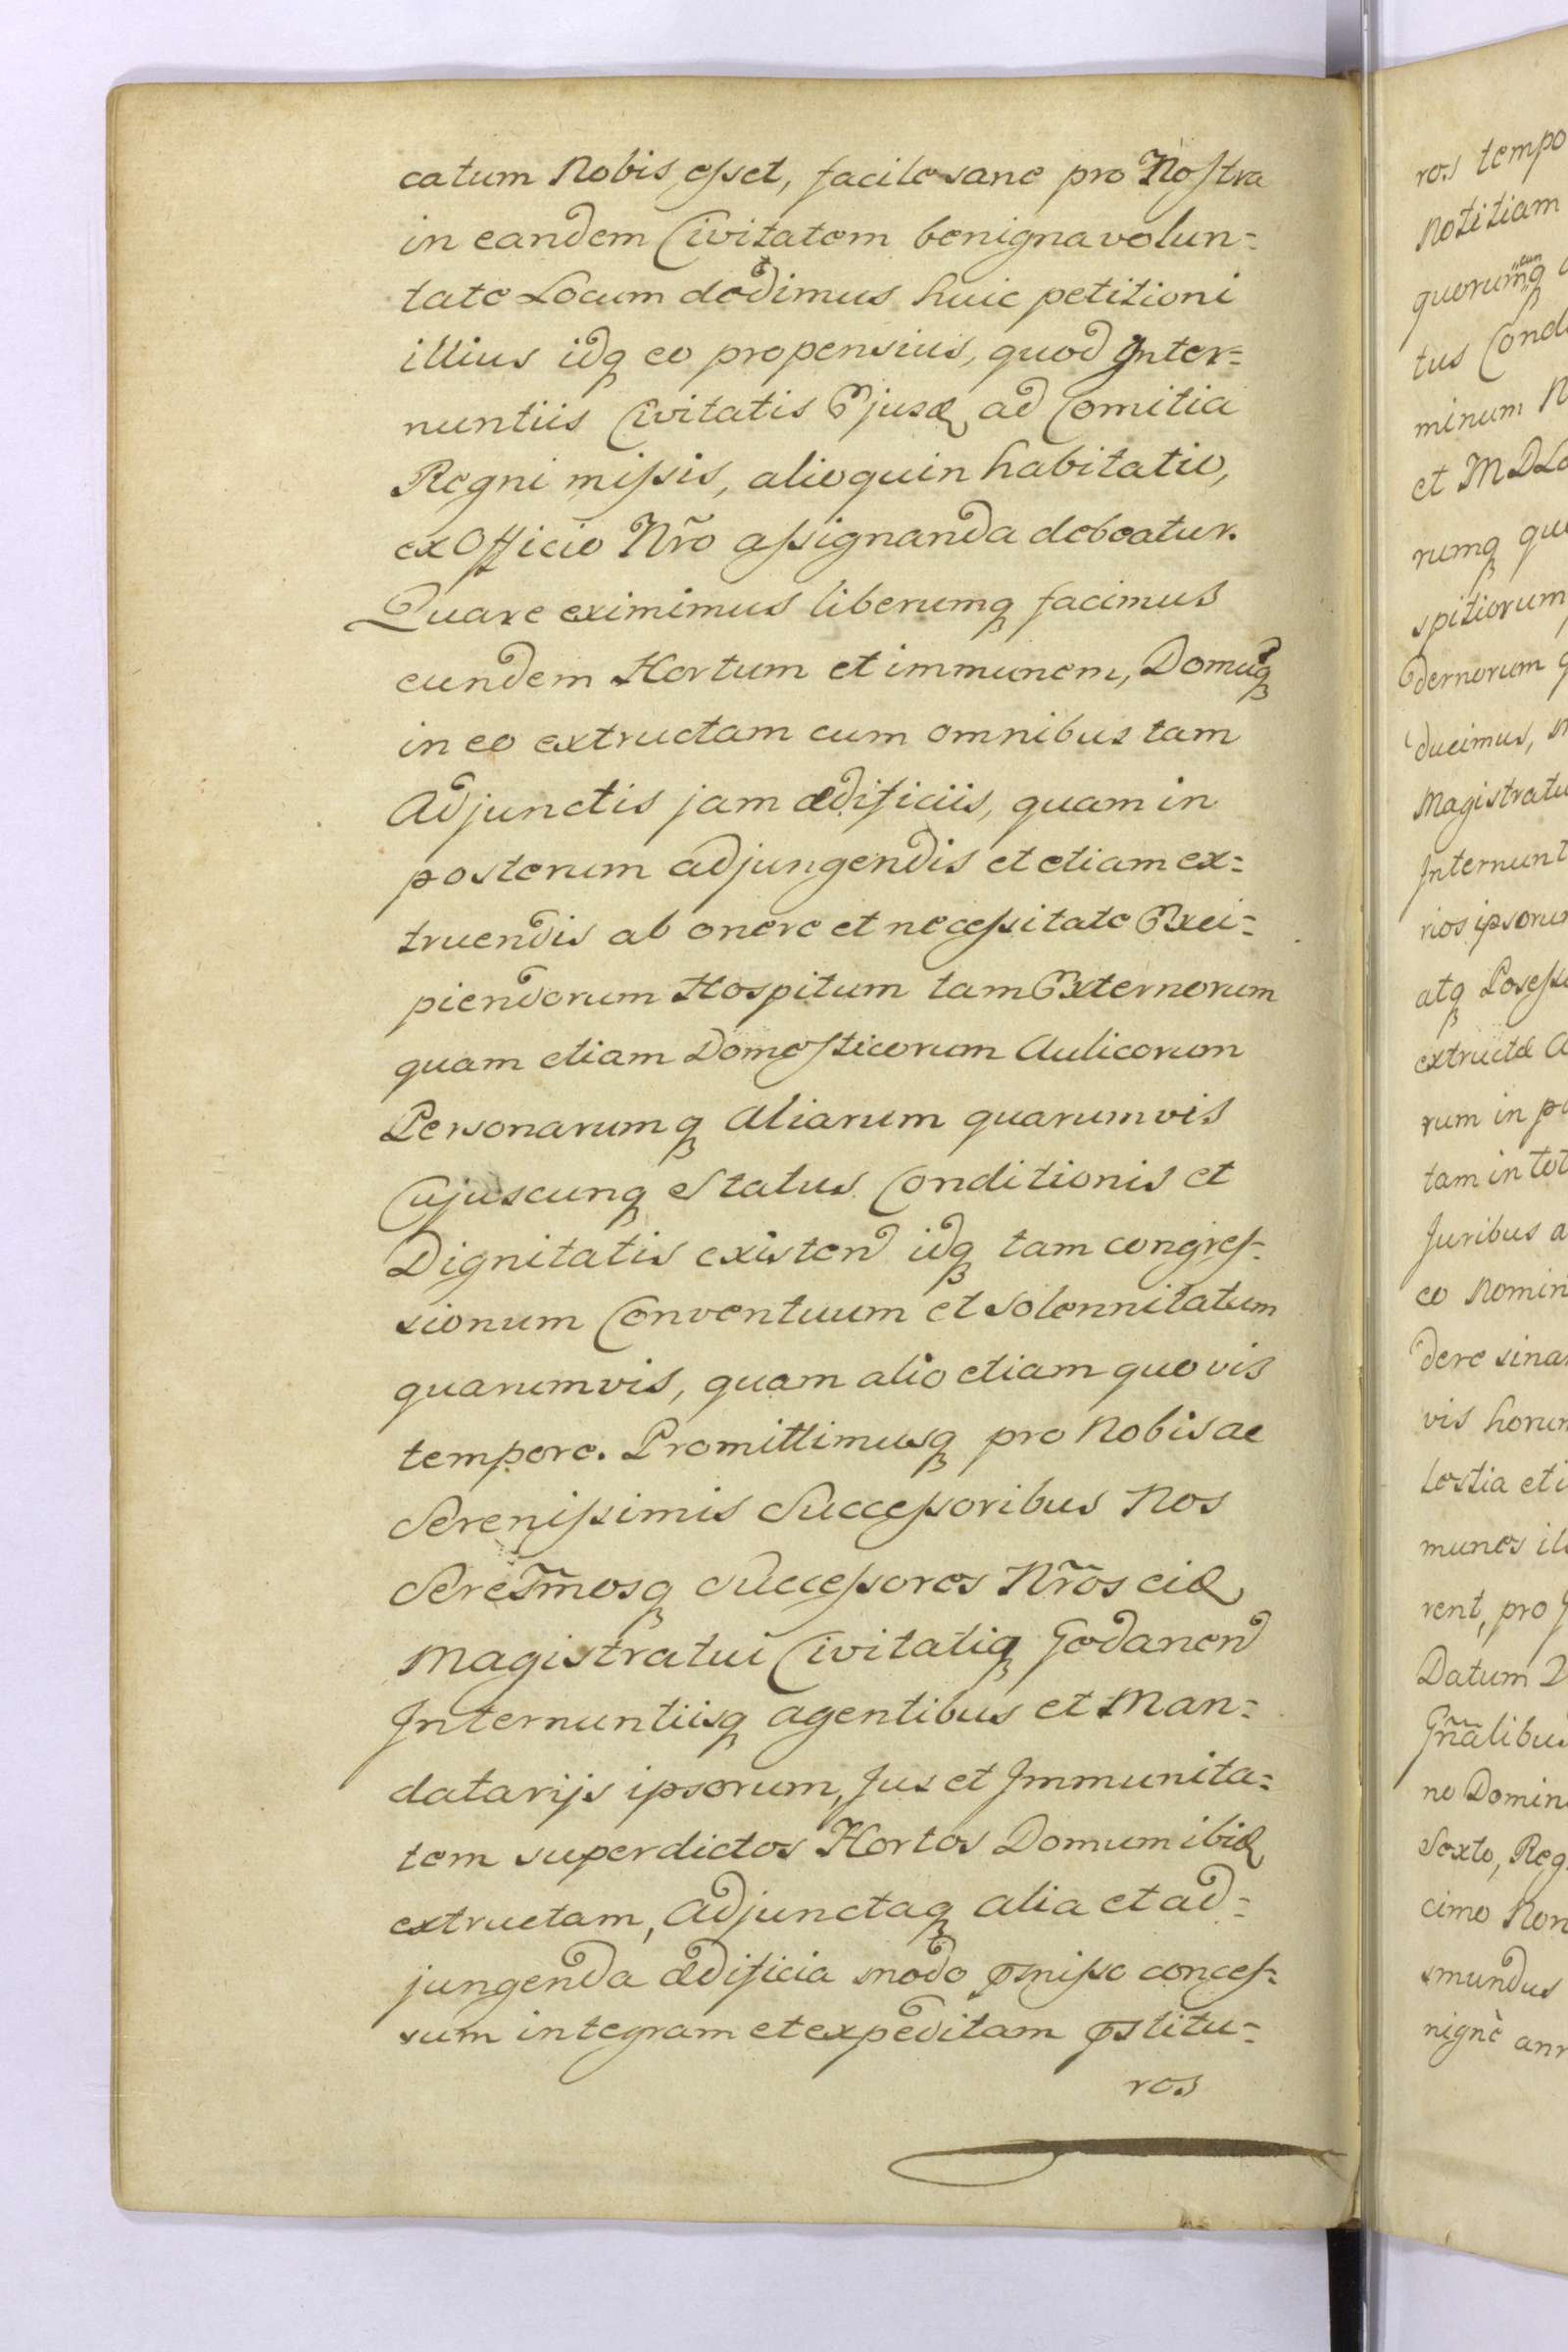 catum Nobis esset, facile sane pro Nostra
in eandem Civitatem benigna volun=
tate Locum dedimus huic petitioni
illius idq eo propensius, quod Inter=
nuntiis Civitatis Ejusd ad Comitia
Regni missis, alioquin habitatio,
ex Officio Nr̃o assignanda debeatur.
Quare eximimus liberumq facimus
eundem Hortum et immunem, Domuq
in eo extructam cum omnibus tam
Adjunctis jam ædificiis, quam in
posterum adjungendis et etiam ex=
truendis ab onere et necessitate Exci=
piendorum Hospitum tam Externorum
quam etiam Domesticorum Aulicorum
Personarumq Aliarum quarumvis
Cujuscunq Status Conditionis et
Dignitatis existend idq tam congres=
sionum Conventuum et Solennitatum
quarumvis, quam alio etiam quovis
tempore. Promittimusq pro Nobis ac
Serenissimis Successoribus Nos
Seres̃mosq Successores Nr̃os eid
Magistratui Civitatiq Gedanend
Internuntiisq agentibus et Man=
datarijs ipsorum, Jus et Immunita=
tem superdictos Hortos Domum ibid
extructam, Adjunctaq alia et ad=
jungenda ædificia modo præmisso conces=
sum integram et expeditam præstitu=
ros
ros tempo
Notitiam
quorumq
cun
tus Cond
minum N
et MDL
rumq qu
spitiorum
dernorum
ducimus,
Magistratu
Internunt
rios ipsoru
atq Posess
extructæ a
rum in p
tam in tot
Juribus a
eo Nomin
dere sina
vis horum
lestia et i
munes il
rent, pro
Datum
Gñalibus
no Domin
Sexto, Reg
cimo Non
smundus
nignè ann